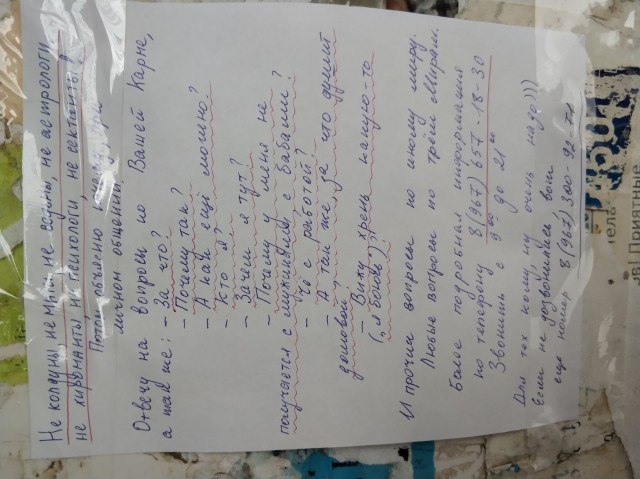 Не колдуны, не маги, не ведуны, не астрологи,
не хироманты, не психологи, не сектанты!
Потом объясню почему, при
личном общении.
Отвечу на вопросы по Вашей Карме,
а так же: - За что?
- Почему так?
- А как ещё можно?
- Кто я?
- Зачем я тут?
- Почему у меня не
получается с мужиками, с бабами?
- Чё с работой?
- А так же, за что душит
домовой.
- Вижу хрень какую-то
И прочии вопросы по иному миру.
Любые вопросы по трём Мирам.
Более подробная информация
по телефону 8(967) 657-18-30
Звонить с 9⁰⁰ до 21⁰⁰
Для тех кому, ну очень надо)))
Если не дозвонились, вот
ещё номер 8(967) 300-92-
тель
Приятные